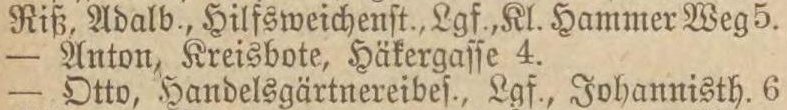 Riß, Adalb., Hilfsweichenst., Lgf., Kl. Hammer Weg 5.
— Anton, Kreisbote, Häkergasse 4.
— Otto, Handelsgärtnereibes., Lgf., Johannisth. 6